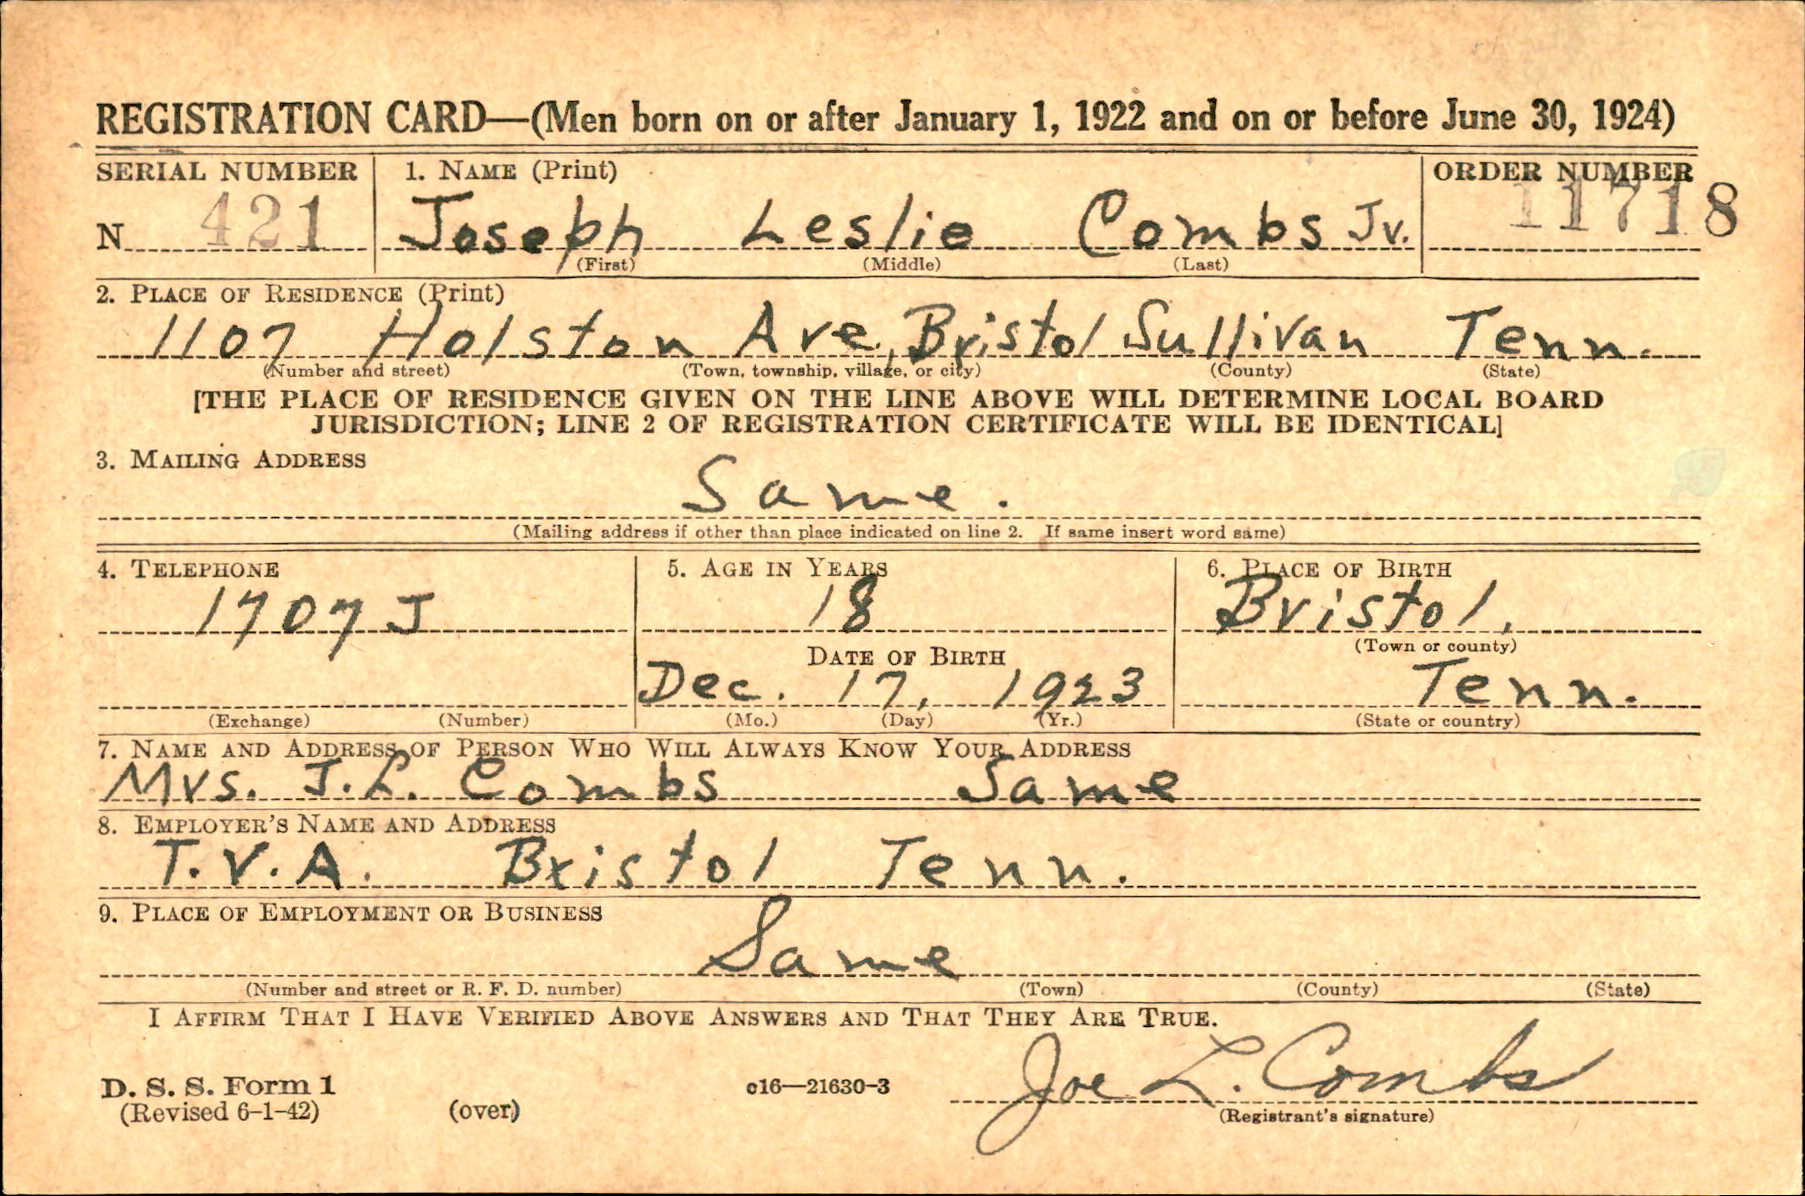 REGISTRATION CARD—(Men born on or after January 1, 1922 and on or before June 30, 1924)
SERIAL NUMBER 1. NAME (Print) ORDER NUMBER
N 421 Joseph Leslie Combs Jr. 11718
(First) (Middle) (Last)
2. PLACE OF RESIDENCE (Print)
1107 Holston Ave, Bristol Sullivan Tenn.
(Number and street) (Town, township, village, or city) (County) (State)
[THE PLACE OF RESIDENCE GIVEN ON THE LINE ABOVE WILL DETERMINE LOCAL BOARD
JURISDICTION; LINE 2 OF REGISTRATION CERTIFICATE WILL BE IDENTICAL]
3. MAILING ADDRESS
Same.
(Mailing address if other than place indicated on line 2. If same insert word same)
4. TELEPHONE 5. AGE IN YEARS 6. PLACE OF BIRTH
1707 J 18 Bristol,
(Town or county)
DATE OF BIRTH
Dec. 17, 1923 Tenn.
(Exchange) (Number) (Mo.) (Day) (Yr.) (State or country)
7. NAME AND ADDRESS OF PERSON WHO WILL ALWAYS KNOW YOUR ADDRESS
Mrs. J. L. Combs Same
8. EMPLOYER'S NAME AND ADDRESS
T.V.A. Bristol Tenn.
9. PLACE OF EMPLOYMENT OR BUSINESS
Same
(Number and street or R. F. D. number) (Town) (County) (State)
I AFFIRM THAT I HAVE VERIFIED ABOVE ANSWERS AND THAT THEY ARE TRUE.
Joe L. Combs
D. S. S. Form 1 c16—21630-3
(Revised 6-1-42) (over) (Registrant's signature)